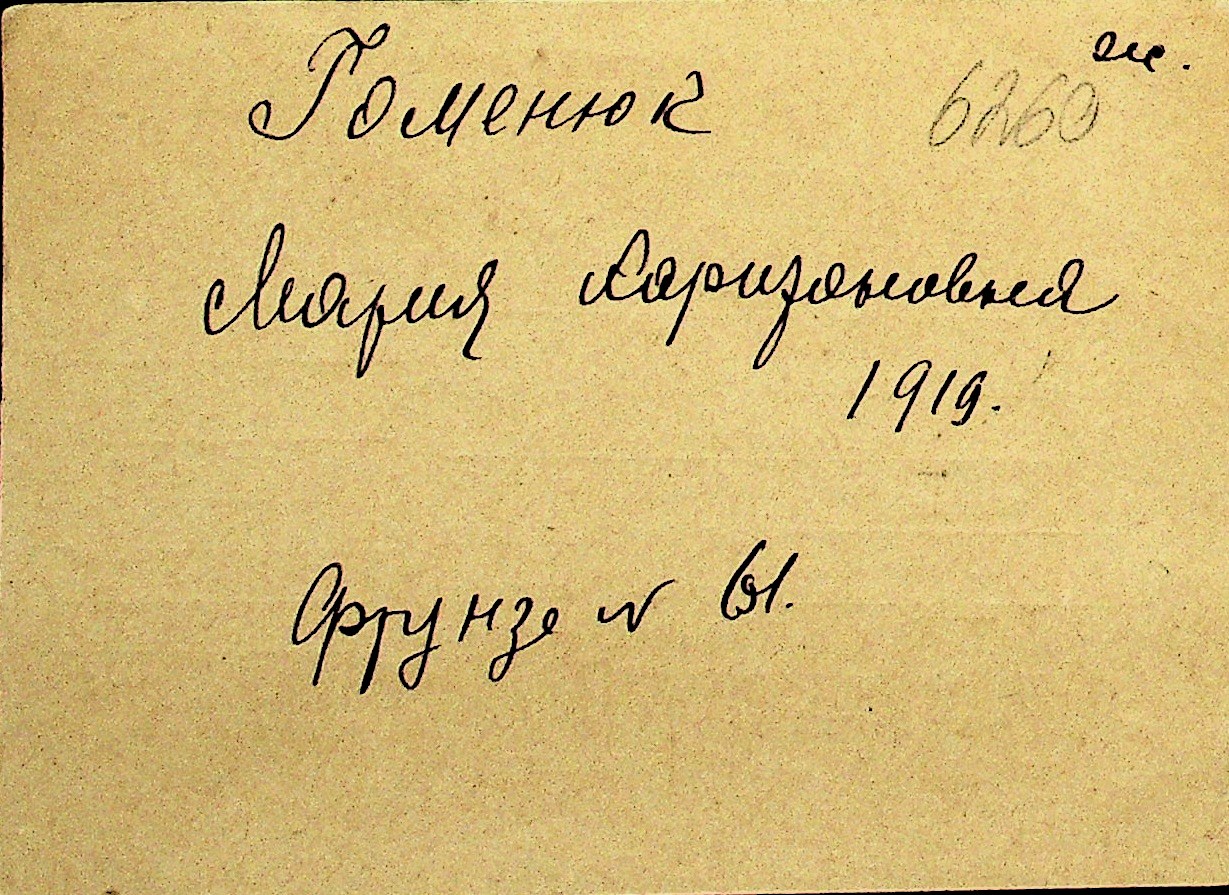 ж.
Гоменюк 6260
Мария Харизановна
1919.
Фрунзе N 61.